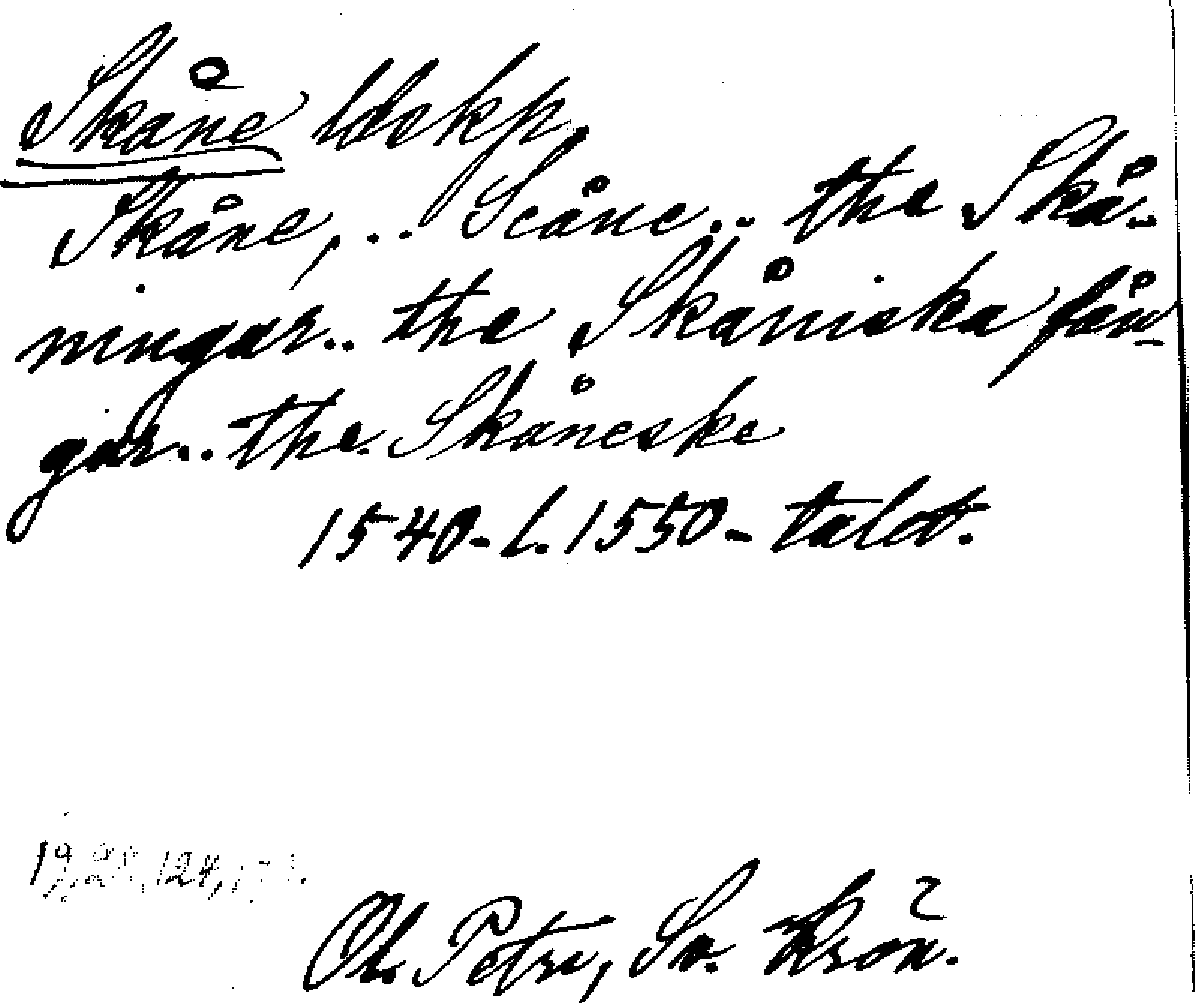 Skåne ldskp.
Skåne, .. Scåne .. the Skå-
ningar .. the Skåniska fån-
gar .. the Skåneske
1540- l. 1550-talet.
19, 124,
Ol. Petri, Sv. Krön.